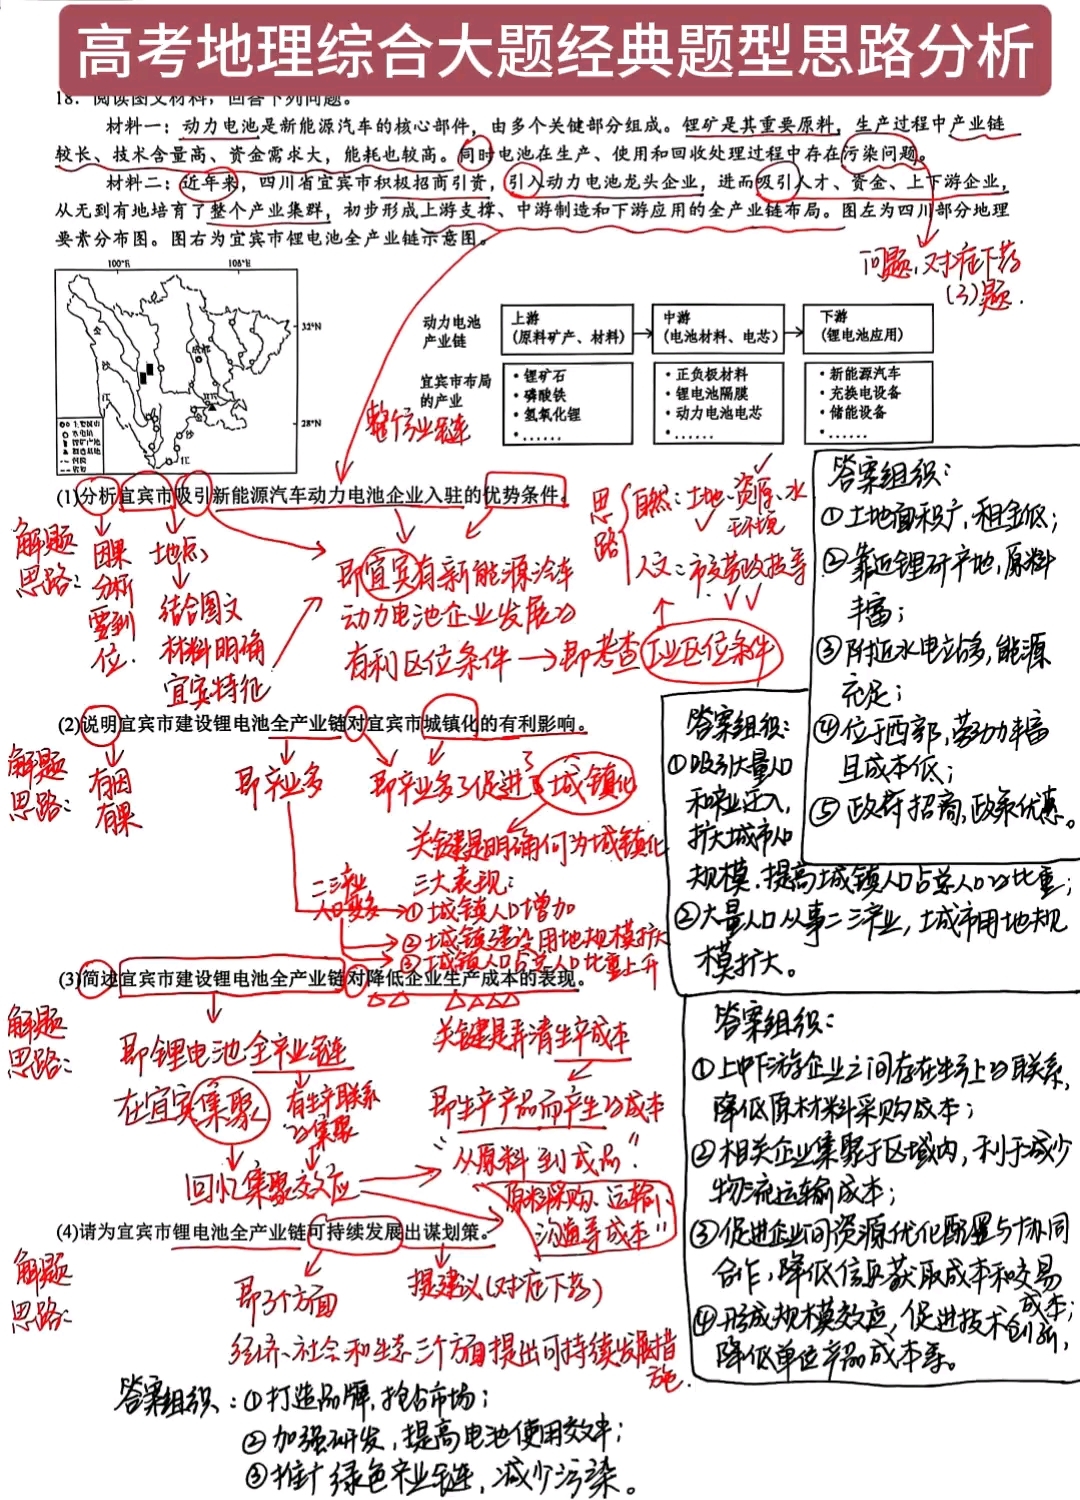 高考地理综合大题经典题型思路分析
18. 阅读图文材料，回答下列问题。
材料一：动力电池是新能源汽车的核心部件，由多个关键部分组成。锂矿是其重要原料，生产过程中产业链
较长、技术含量高、资金需求大，能耗也较高。同时电池在生产、使用和回收处理过程中存在污染问题。
材料二：近年来，四川省宜宾市积极招商引资，引入动力电池龙头企业，进而吸引人才、资金、上下游企业，
从无到有地培育了整个产业集群，初步形成上游支撑、中游制造和下游应用的全产业链布局。图左为四川部分地理
要素分布图。图右为宜宾市锂电池全产业链示意图。
问题，对症下药
(3)题.
100°E
32°N
28°N
成都
宜宾
金
沙
江
动力电池
产业链
上游
(原料矿产、材料)
中游
(电池材料、电芯)
下游
(锂电池应用)
宜宾市布局
的产业
·锂矿石
·磷酸铁
·氢氧化锂
·……
·正负极材料
·锂电池隔膜
·动力电池电芯
·……
·新能源汽车
·充换电设备
·储能设备
·……
整个产业链
(1)分析宜宾市吸引新能源汽车动力电池企业入驻的优势条件。
解题
思路：
因果
分析
要到
位.
地点
结合图文
材料明确
宜宾特征
即宜宾有新能源汽车
动力电池企业发展的
有利区位条件→即考查工业区位条件
思
路
自然：土地、资源、水
环境
人文：市交劳政技等
答案组织：
①土地面积广，租金低；
②靠近锂矿产地，原料
丰富；
③附近水电站多，能源
充足；
④位于西部，劳动力丰富
且成本低；
⑤政府招商，政策优惠。
(2)说明宜宾市建设锂电池全产业链对宜宾市城镇化的有利影响。
解题
思路：
有因
有果
即产业多
即产业多了促进了城镇化
关键是明确何为城镇化
三大表现：
二三产业
人口变多
①城镇人口增加
②城镇建设用地规模扩大
③城镇人口占总人口比重上升
答案组织：
①吸引大量人口
和产业迁入，
扩大城市人口
规模，提高城镇人口占总人口的比重；
②大量人口从事二三产业，城市用地规
模扩大。
(3)简述宜宾市建设锂电池全产业链对降低企业生产成本的表现。
解题
思路：
即锂电池全产业链
在宜宾集聚
有生产联系
的集聚
回忆集聚效应
关键是弄清生产成本
即生产产品而产生的成本
“从原料到成品”
原料采购、运输、
沟通等成本”
答案组织：
①上中下游企业之间存在生产上的联系，
降低原材料采购成本；
②相关企业集聚于区域内，利于减少
物流运输成本；
③促进企业间资源优化配置与协同
合作，降低信息获取成本和交易
成本；
④形成规模效应，促进技术创新，
降低单位产品成本等。
(4)请为宜宾市锂电池全产业链可持续发展出谋划策。
解题
思路：
即3个方面
提建议(对症下药)
经济、社会和生态三个方面提出可持续发展措
施.
答案组织：①打造品牌，抢占市场；
②加强研发，提高电池使用效率；
③推广绿色产业链，减少污染。